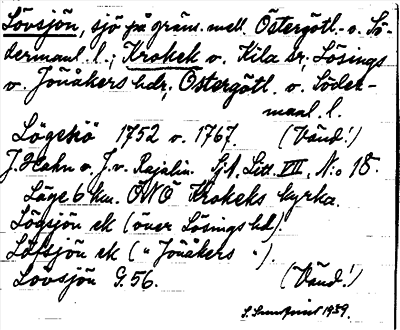 Lövsjön, sjö på gräns. mell. Östergötl. o. Sö-
dermanl. l.; Krokek o. Kila sr, Lösings
o. Jönåkers hdr, Östergötl. o. Söder-
manl. l.
Lögskö 1752 o. 1767. (Vänd!)
J. Hahn o. J. v. Rajalin. Gj. A. Litt. VIII, N:o 18.
Läge 6 km. ONO Krokeks kyrka.
Lögsjön ek (över Lösings hd).
Löfsjön ek ( " Jönåkers " ).
Lövsjön G. 56. (Vänd!)
1939.